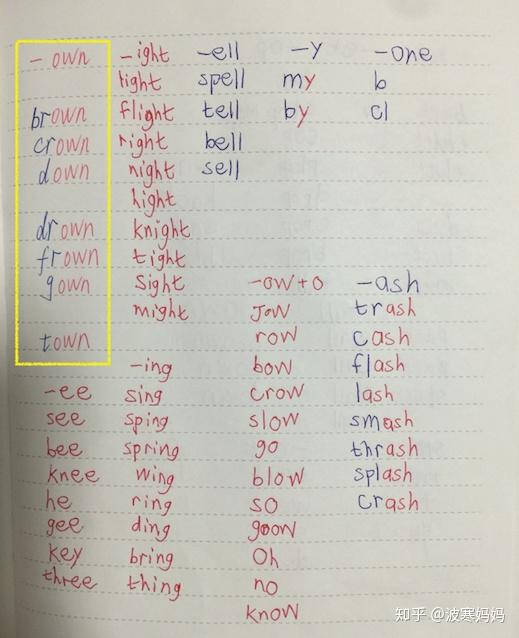 -own
brown
crown
down
drown
frown
gown
town
-ee
see
bee
knee
he
gee
key
three
-ight
light
flight
right
night
hight
knight
tight
sight
might
-ing
sing
sping
spring
wing
ring
ding
bring
thing
-ell
spell
tell
bell
sell
-y
my
by
-one
b
cl
-ow+o
Jow
row
bow
crow
slow
go
blow
so
Oh
no
know
-ash
trash
cash
flash
lash
smash
thrash
splash
crash
知乎 @波寒妈妈